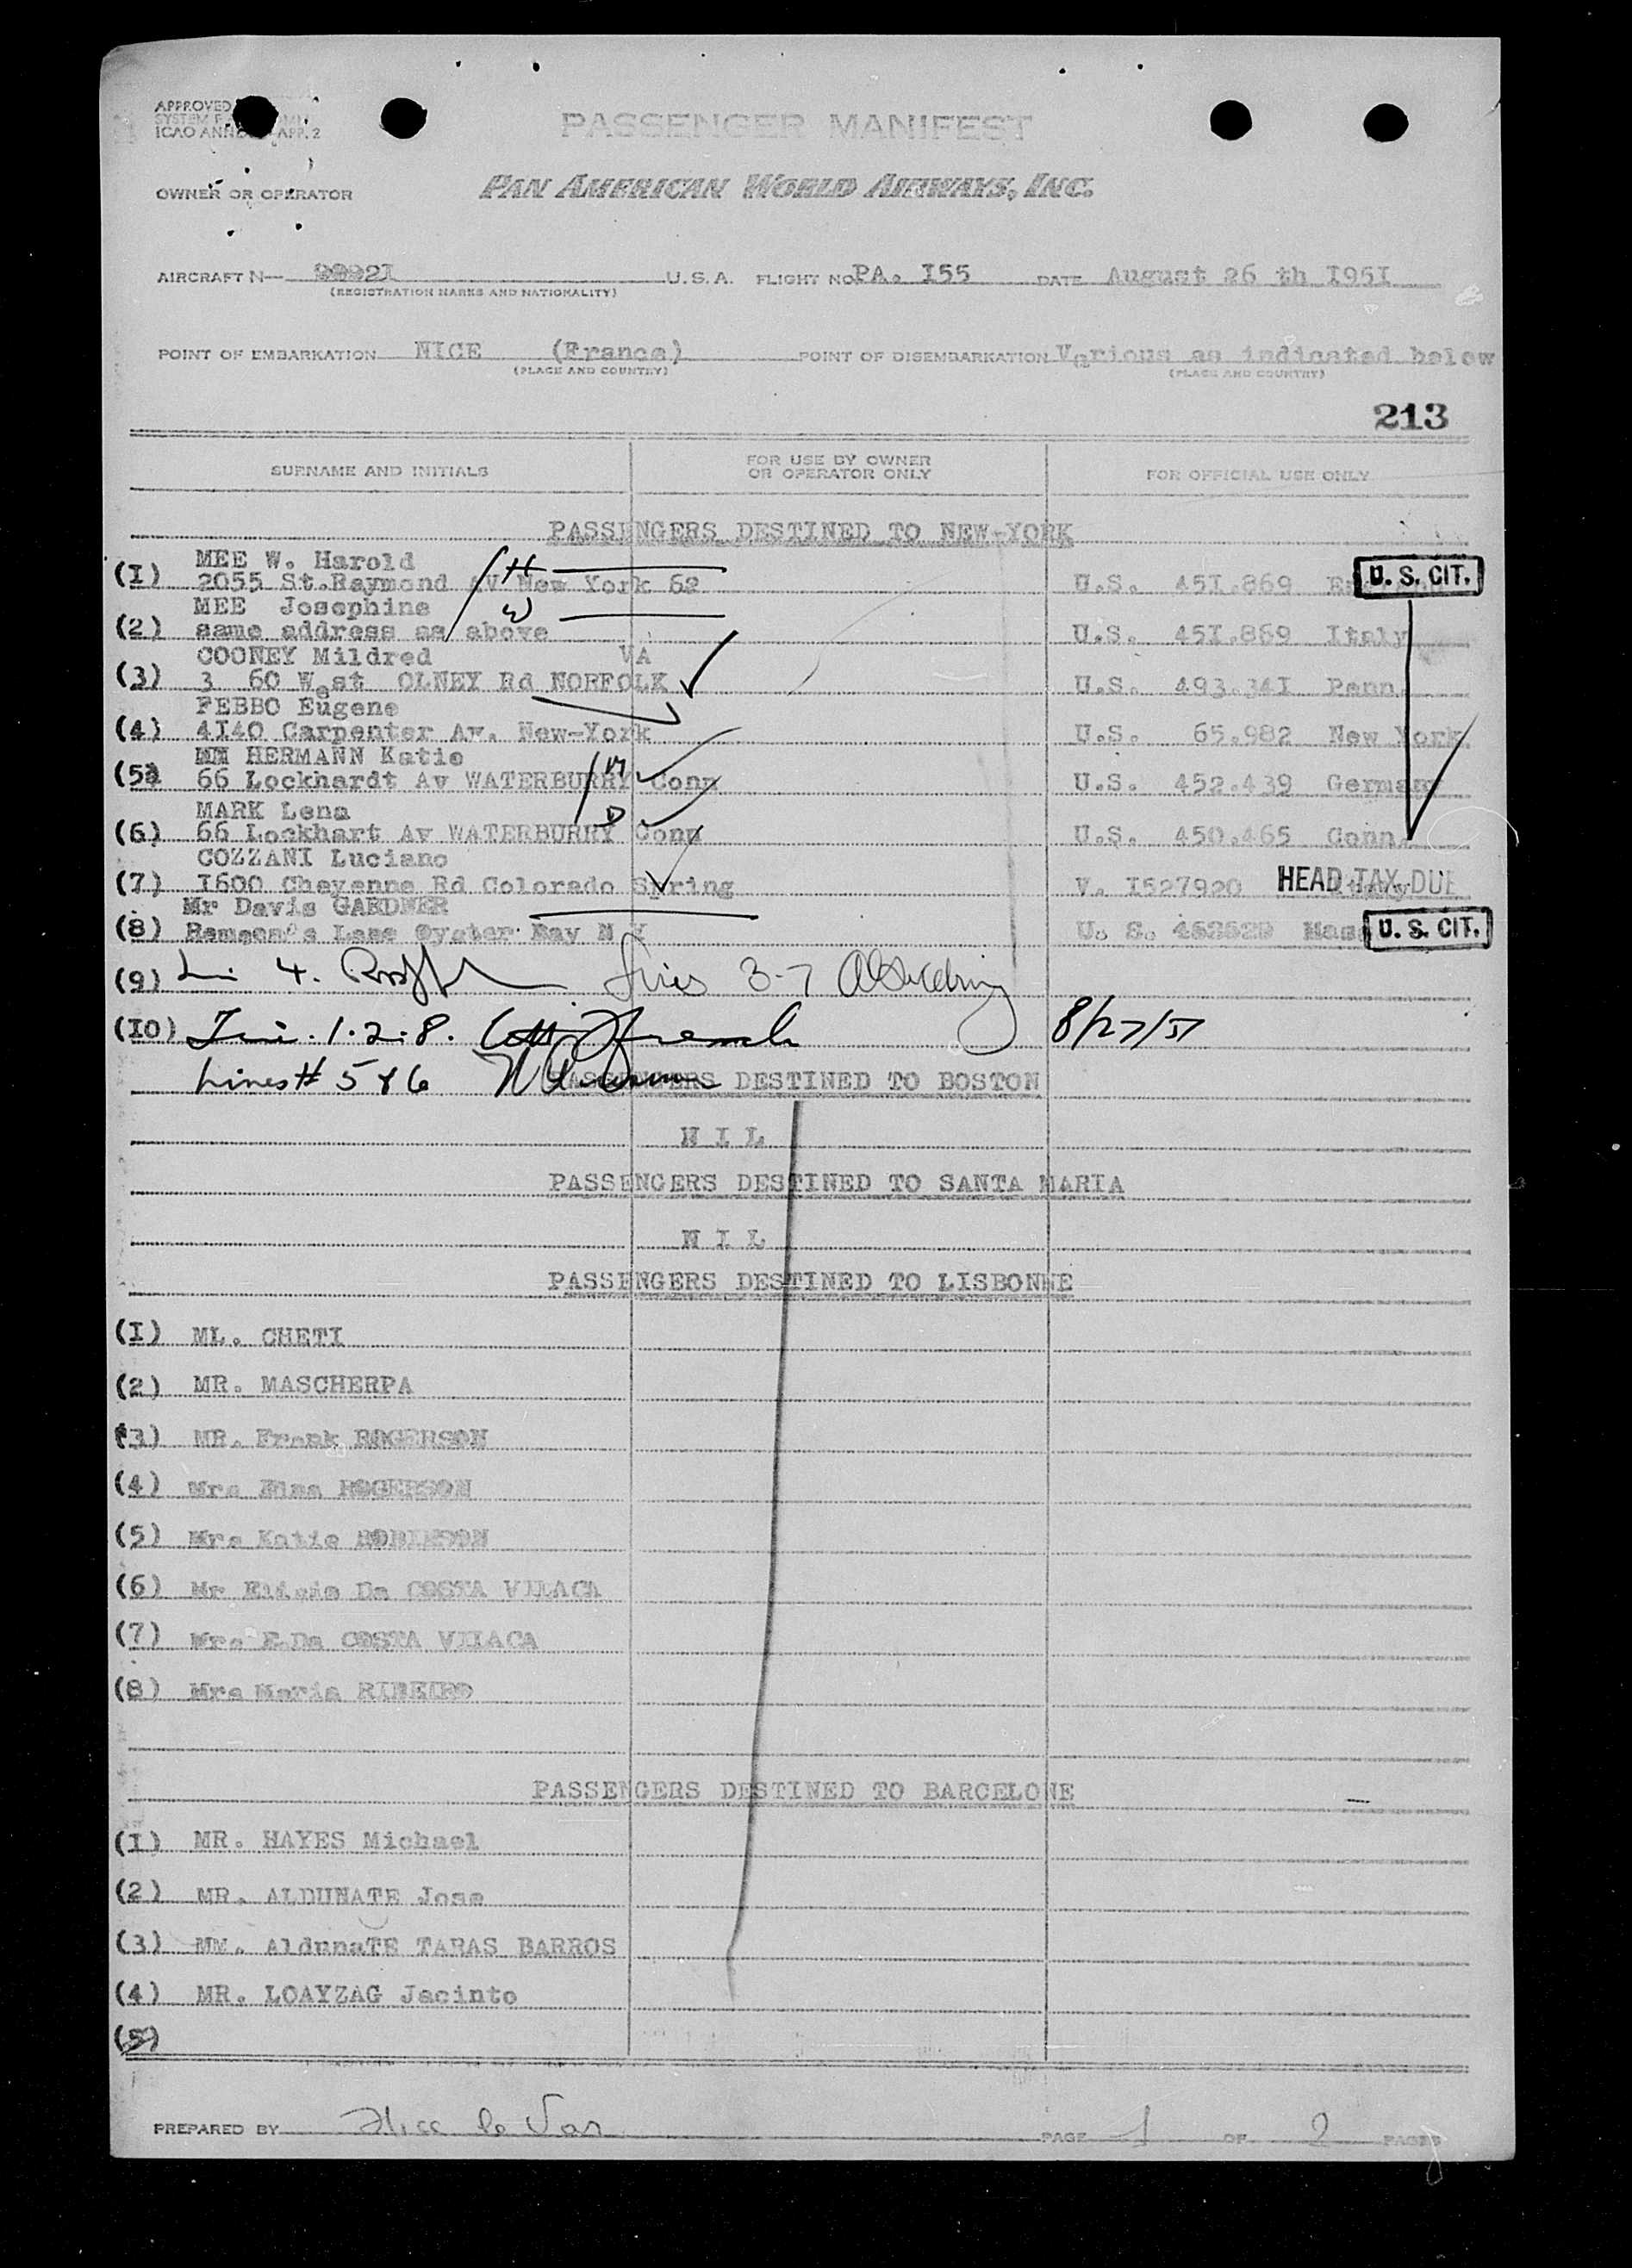 APPROVED
SYSTEM
ICAO ANN APP. 2
PASSENGER MANIFEST
OWNER OR OPERATOR
PAN AMERICAN WORLD AIRWAYS, INC.
AIRCRAFT N— 9992I U.S.A. FLIGHT NO PA. I55 DATE August 26 th I95I
(REGISTRATION MARKS AND NATIONALITY)
POINT OF EMBARKATION NICE (France) POINT OF DISEMBARKATION Various as indicated below
(PLACE AND COUNTRY) (PLACE AND COUNTRY)
213
SURNAME AND INITIALS FOR USE BY OWNER OR OPERATOR ONLY FOR OFFICIAL USE ONLY
PASSENGERS DESTINED TO NEW-YORK
MEE W. Harold H
(I) 2055 St.Raymond AV New York 62 U.S. 45I.869 U. S. CIT.
MEE Josephine W
(2) same address as above U.S. 45I.869 Italy
COONEY Mildred VA
(3) 3 60 West OLNEY Rd NORFOLK U.S. 493.34I Penn.
FEBBO Eugene
(4) 4I40 Carpenter Av. New-York U.S. 65.982 New York
MM HERMANN Katie M
(5) 66 Lockhardt Av WATERBURRY Conn U.S. 452.439 Germany
MARK Lena D
(6) 66 Lockhart Av WATERBURRY Conn U.S. 450.465 Conn.
COZZANI Luciano
(7) I600 Cheyenne Rd Colorado Spring V. I527920 HEAD TAX DUE
Mr Davis GARDNER
(8) Lane Oyster Bay N Y U. S. Mass U. S. CIT.
(9) Li 4. Lines 3-7
(IO) 1.2.8. 8/27/51
Lines # 5 & 6
PASSENGERS DESTINED TO BOSTON
N I L
PASSENGERS DESTINED TO SANTA MARIA
N I L
PASSENGERS DESTINED TO LISBONNE
(I) ML. CHETI
(2) MR. MASCHERPA
(3) MR. Frank ROGERSON
(4) Mrs ROGERSON
(5) Mrs Katie ROBINSON
(6) Mr Da COSTA VILACA
(7) Mrs E.Da COSTA VILACA
(8) Mrs Maria RIBEIRO
PASSENGERS DESTINED TO BARCELONE
(I) MR. HAYES Michael
(2) MR. ALDUNATE Jose
(3) MM. AldunaTE TARAS BARROS
(4) MR. LOAYZAG Jacinto
(5)
PREPARED BY PAGE 1 OF 2 PAGES